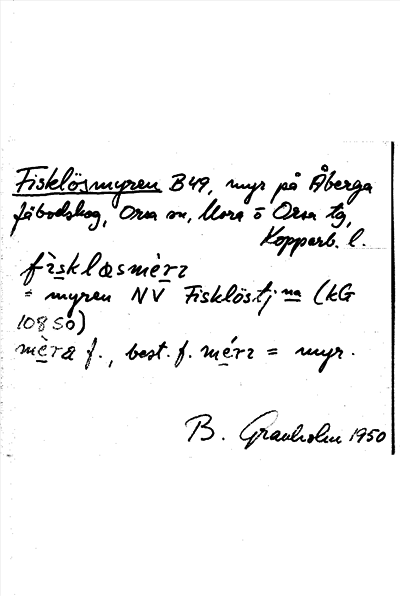 Fisklösmyren B49, myr på Åberga
fäbodskog, Orsa sn, Mora o Orsa tg,
Kopparb. l.
fìsklæsmèrɪ
= myren NV Fisklöstjna (kG
108 SO)
mèra f., best. f. mérɪ = myr.
B. Granholm 1950